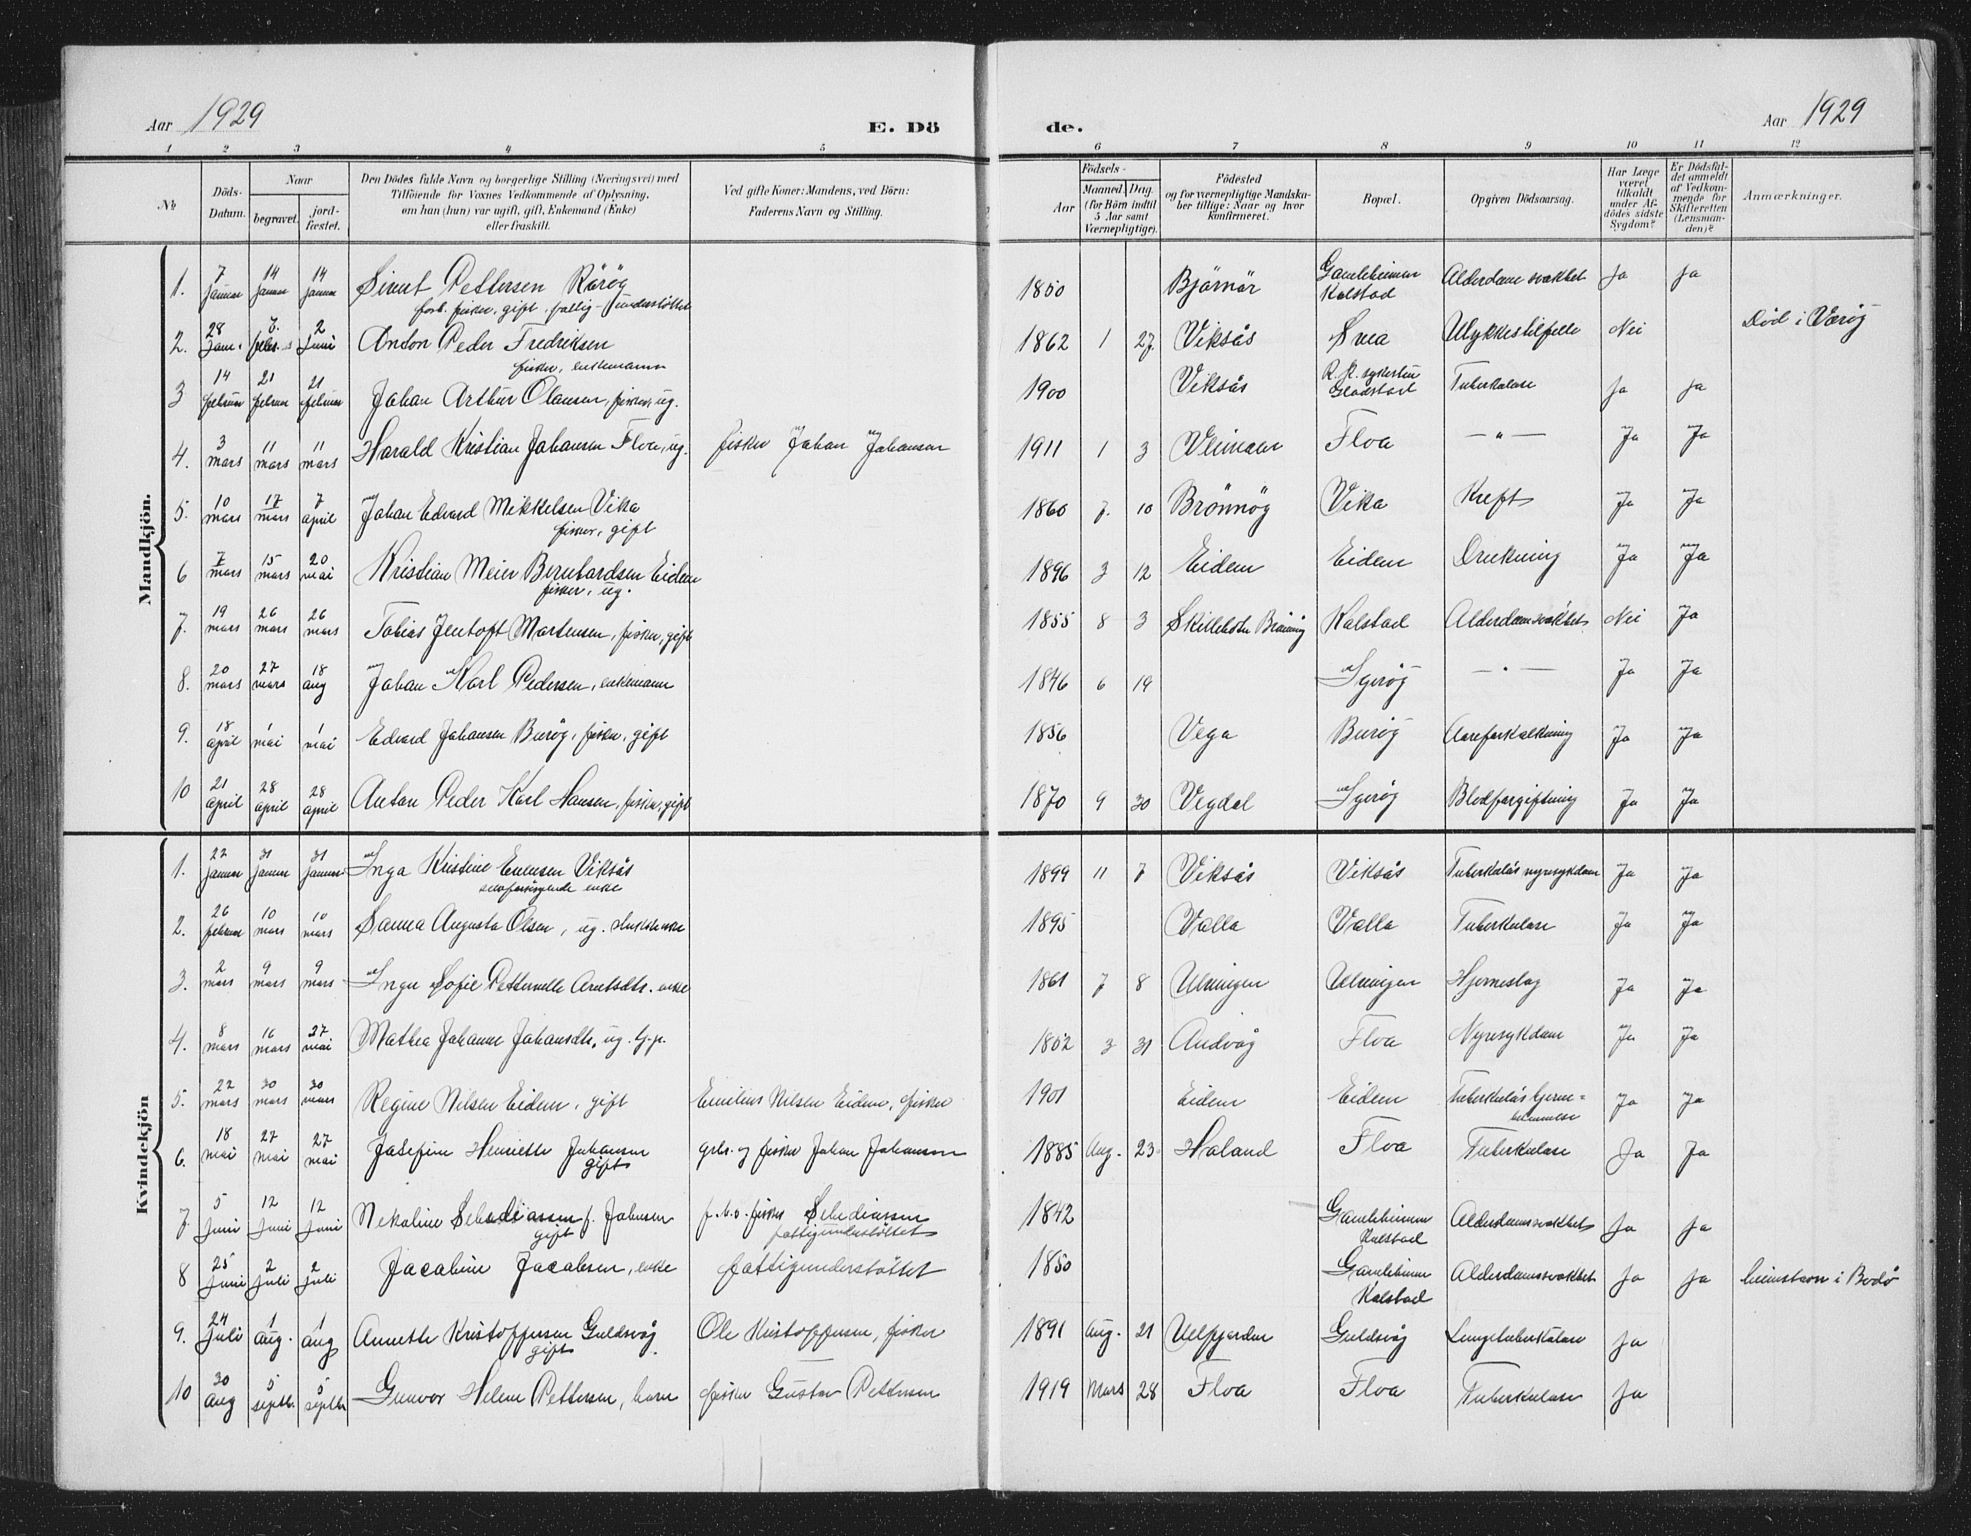 Aar 1929
E. Dö
de.
Aar 1929
1 2 3 4 5 6 7 8 9 10 11 12
№
Döds-Datum.
Naar
begravet.
jord-fæstet.
Den Dödes fulde Navn og borgerlige Stilling (Næringsvei) med
Tilföiende for Voxnes Vedkommende af Oplysning,
om han (hun) var ugift, gift, Enkemand (Enke)
eller fraskilt.
Ved gifte Koner: Mandens, ved Börn:
Faderens Navn og Stilling.
Födsels-
Aar
Maaned. Dag.
(for Börn indtil
5 Aar samt
Værnepligtige).
Födested
og for værnepligtige Mandska-
ber tillige: Naar og hvor
konfirmeret.
Bopæl.
Opgiven Dödsaarsag.
Har Læge
været
tilkaldt
under Af-
dödes sidste
Sygdom?
Er Dödsfal-
det anmeldt
af Vedkom-
mende for
Skifteretten
(Lensman-
den)?
Anmærkninger.
Mandkjön.
1. 7 januar 14 januar 14 januar Sivert Pettersen Rörög 1850 Bjørnør Gamleheimen Kalstad Alderdomsvakhet Ja Ja
forh. fisker, gift, fattig-understöttet
2. 28 jan. 7. febr. 2 juni Anton Peder Fredriksen 1862 1 27 Viksås Svea Ulykkestilfelle Nei Död i Værög
fisker, enkemann
3 14 februar 21 februar 21 februar Johan Arthur Olausen, fisker, ug. 1900 Viksås R. K. sykestue Gladstad Tuberkulose Ja Ja
4. 3 mars 11 mars 11 mars Harald Kristian Johansen Floa, ug. fisker Johan Johansen 1911 1 3 Floa — " — Ja Ja
5. 10 mars 17 mars 7 april Johan Edvard Mikkelsen Vika 1860 7. 10 Brönnög Vika Kreft Ja Ja
fisker, gift
6 7 mars 15 mars 20 mai Kristian Meier Bernhardsen Eidem 1896 3 12 Eidem Eidem Drukning Ja Ja
fisker, ug.
7. 19 mars 26 mars 26 mars Tobias Jentoft Mortensen, fisker, gift 1855 8 3 Kalstad Alderdomsvakhet Nei Ja
8. 20 mars 27 mars 18 aug Johan Karl Pedersen, enkemann 1846 6 19 Igerög — " — Ja Ja
9. 18 april 1 mai 1 mai Edvard Johansen Burög, fisker, gift 1856 Vega Burög Aareforkalkning Ja Ja
10 21 april 28 april 28 april Anton Peder Karl Hansen, fisker, gift 1870 9 30 Vegdal Igerög Blodforgiftning Ja Ja
Kvindekjön
1. 22 januar 31 januar 31 januar Inga Kristine Evensen Viksås 1899 11 7 Viksås Viksås Tuberkuløs nyresykdom Ja Ja
selvforsörgende enke
2. 26 februar 10 mars 10 mars Sanna Augusta Olsen, ug. 1895 Valla Valla Tuberkulose Ja Ja
3. 2 mars 9 mars 9 mars Inger Sofie Petternelle Arntsdtr. enke 1861 7 8 Ulvingen Ulvingen Hjerneslag Ja Ja
4. 8 mars 16 mars 27 mai Mathea Johanne Johansdtr, ug. tj.p. 1852 3 31 Andvåg Floa Nyresykdom Ja Ja
5. 22 mars 30 mars 30 mars Regine Nilsen Eidem, gift Emilius Nilsen Eidem, fisker 1901 Eidem Eidem Tuberkuløs hjerne= Ja Ja
6. 18 mai 27 mai 27 mai Josefine Henriette Johansen grbr. og fisker Johan Johansen 1885 Aug. 23 Haland Floa Tuberkulose Ja Ja
gift
7. 5 juni 12 juni 12 juni Nekoline Sebediassen f. Johnsen f.v. fisker Sebediassen 1842 Gamleheimen Kalstad Alderdomsvakhet Ja Ja
gift fattigunderstöttet
8 25 juni 2 juli 2 juli Jacobine Jacobsen, enke fattigunderstöttet 1850 Gamleheimen Kalstad Alderdomssvakhet Ja Ja heimstavn i Bodø
9. 24 juli 1 aug. 1 aug Annette Kristoffersen Guldsvåg Ole Kristoffersen, fisker 1891 Aug. 21 Velfjorden Guldsvåg Lungetuberkulose Ja
gift
10 30 aug 5 septb. 5 septbr Gunvor Helene Pettersen, barn fisker Gustav Pettersen 1919 Mars 28 Floa Floa Tuberkulose Ja